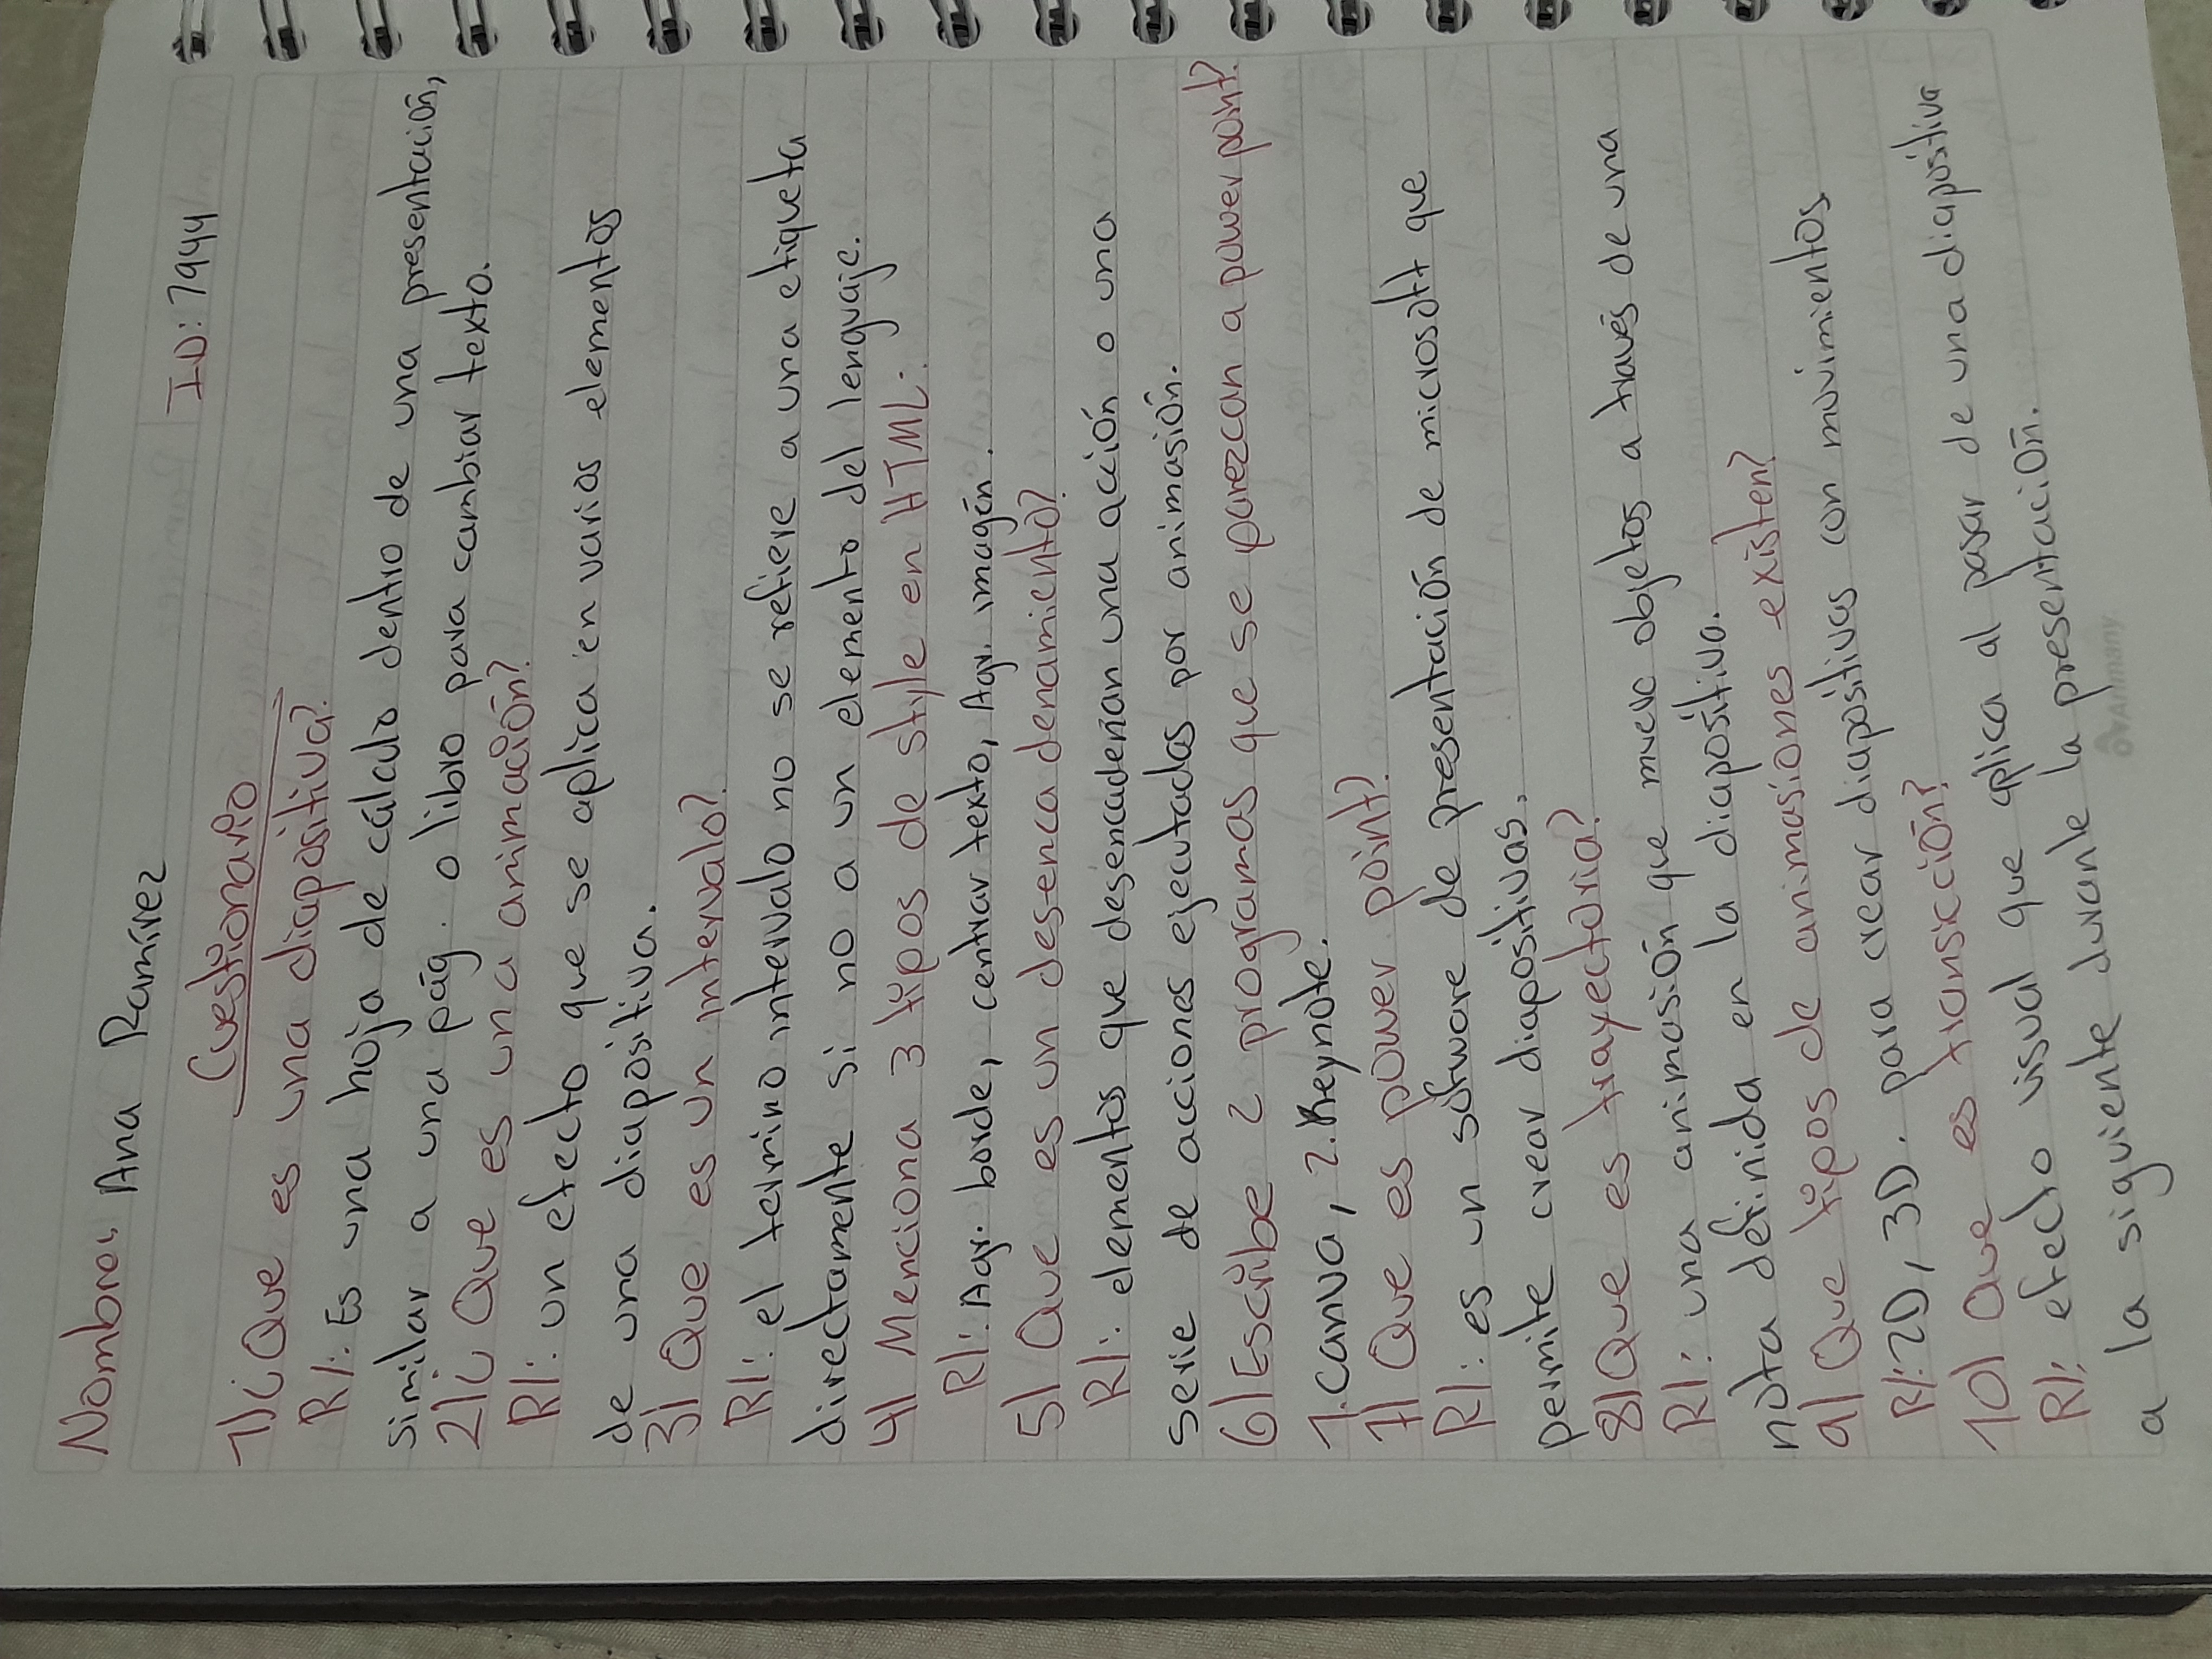 Nombre: Ana Ramírez
ID: 7944
Cuestionario
1) ¿Que es una diapositiva?
R/: Es una hoja de cálculo dentro de una presentación,
similar a una pág. o libro para cambiar texto.
2) ¿ Que es una animación?
R/: un efecto que se aplica en varios elementos
de una diapositiva.
3) Que es un intervalo?
R/: el termino intervalo no se refiere a una etiqueta
directamente si no a un elemento del lenguaje.
4) Menciona 3 tipos de style en HTML:
R/: Agr. borde, centrar texto, Agr. imagén.
5) Que es un desencadenamiento?
R/: elementos que desencadenan una acción o una
serie de acciones ejecutadas por animasión.
6) Escribe 2 programas que se parezcan a power point?
1. Canva, 2. Keynote.
7) Que es power point?
R/: es un software de presentación de microsoft que
permite crear diapositivas.
8) Que es trayectoria?
R/: una animasión que mueve objetos a través de una
nota definida en la diapositiva.
9) Que tipos de animasiones existen?
R/: 2D, 3D. para crear diapositivas con movimientos
10) Que es transición?
R/: efecto visual que aplica al pasar de una diapositiva
a la siguiente durante la presentación.
Armany